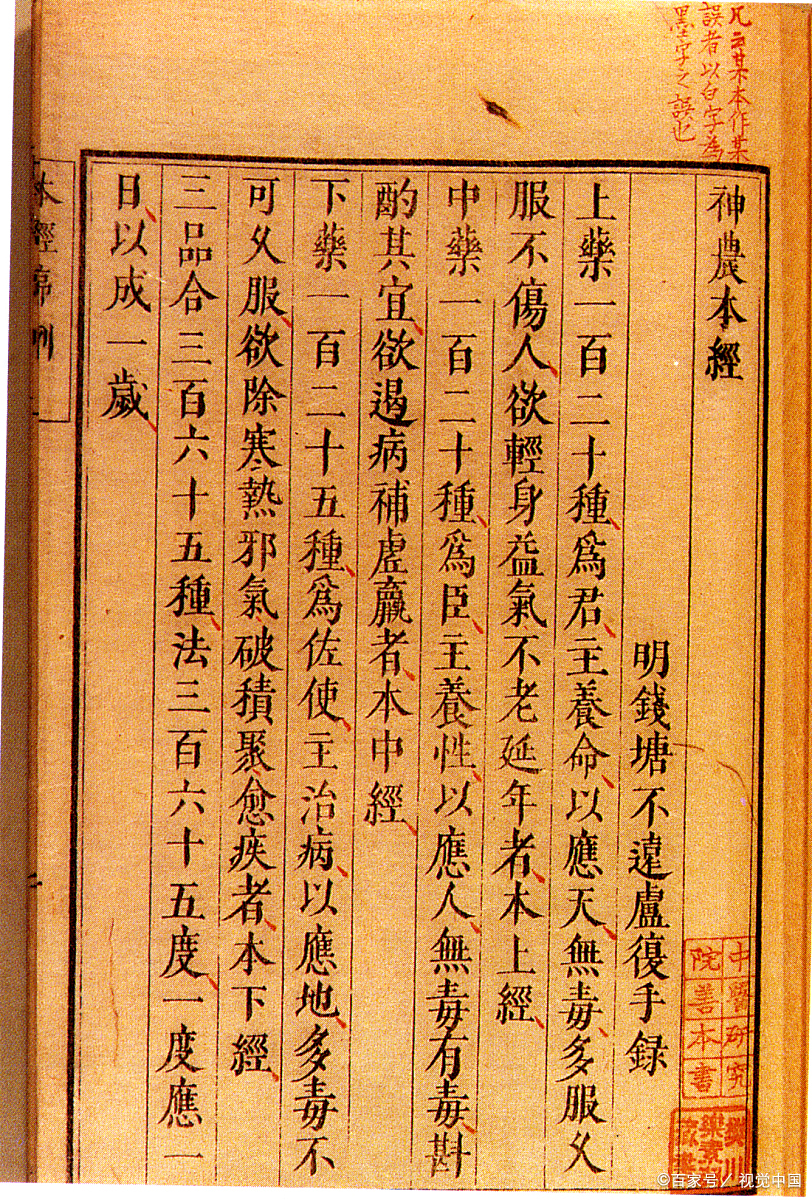 凡云某本作某
誤者以白字為
黑字之誤也
神農本經
明錢塘不遠盧復手録
上藥一百二十種爲君主養命以應天無毒多服久
服不傷人欲輕身益氣不老延年者本上經
中藥一百二十種爲臣主養性以應人無毒有毒斟
酌其宜欲遏病補虛羸者本中經
下藥一百二十五種爲佐使主治病以應地多毒不
可久服欲除寒熱邪氣破積聚愈疾者本下經
三品合三百六十五種法三百六十五度一度應一
日以成一歲
本經序例
中醫研究
院善本書
©百家号/视觉中国